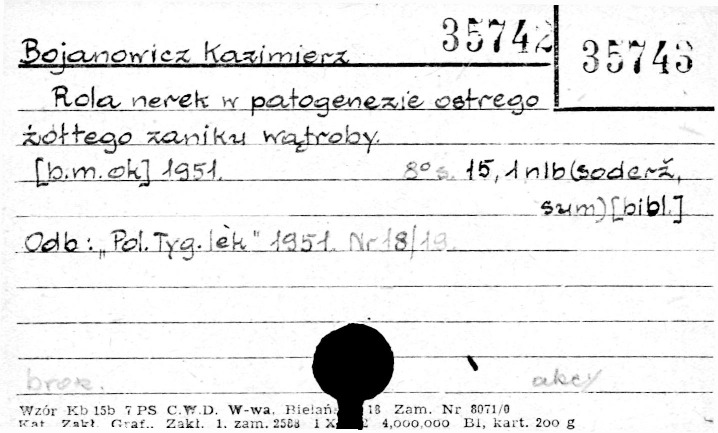 35742
35743
Bojanowicz Kazimierz
Rola nerek w patogenezie ostrego
żółtego zaniku wątroby.
[b.m.ok] 1951. 8° s. 15, 1 nlb (soderž,
sum) [bibl.]
Odb: „Pol. Tyg. lek" 1951. Nr 18/19.
brosz. akcy
Wzór Kb 15b 7 PS C.W.D. W-wa, Bielań 18 Zam. Nr 8071/0
Kat. Zakł. Graf., Zakł. 1, zam. 2588 4,000,000 Bl, kart. 200 g